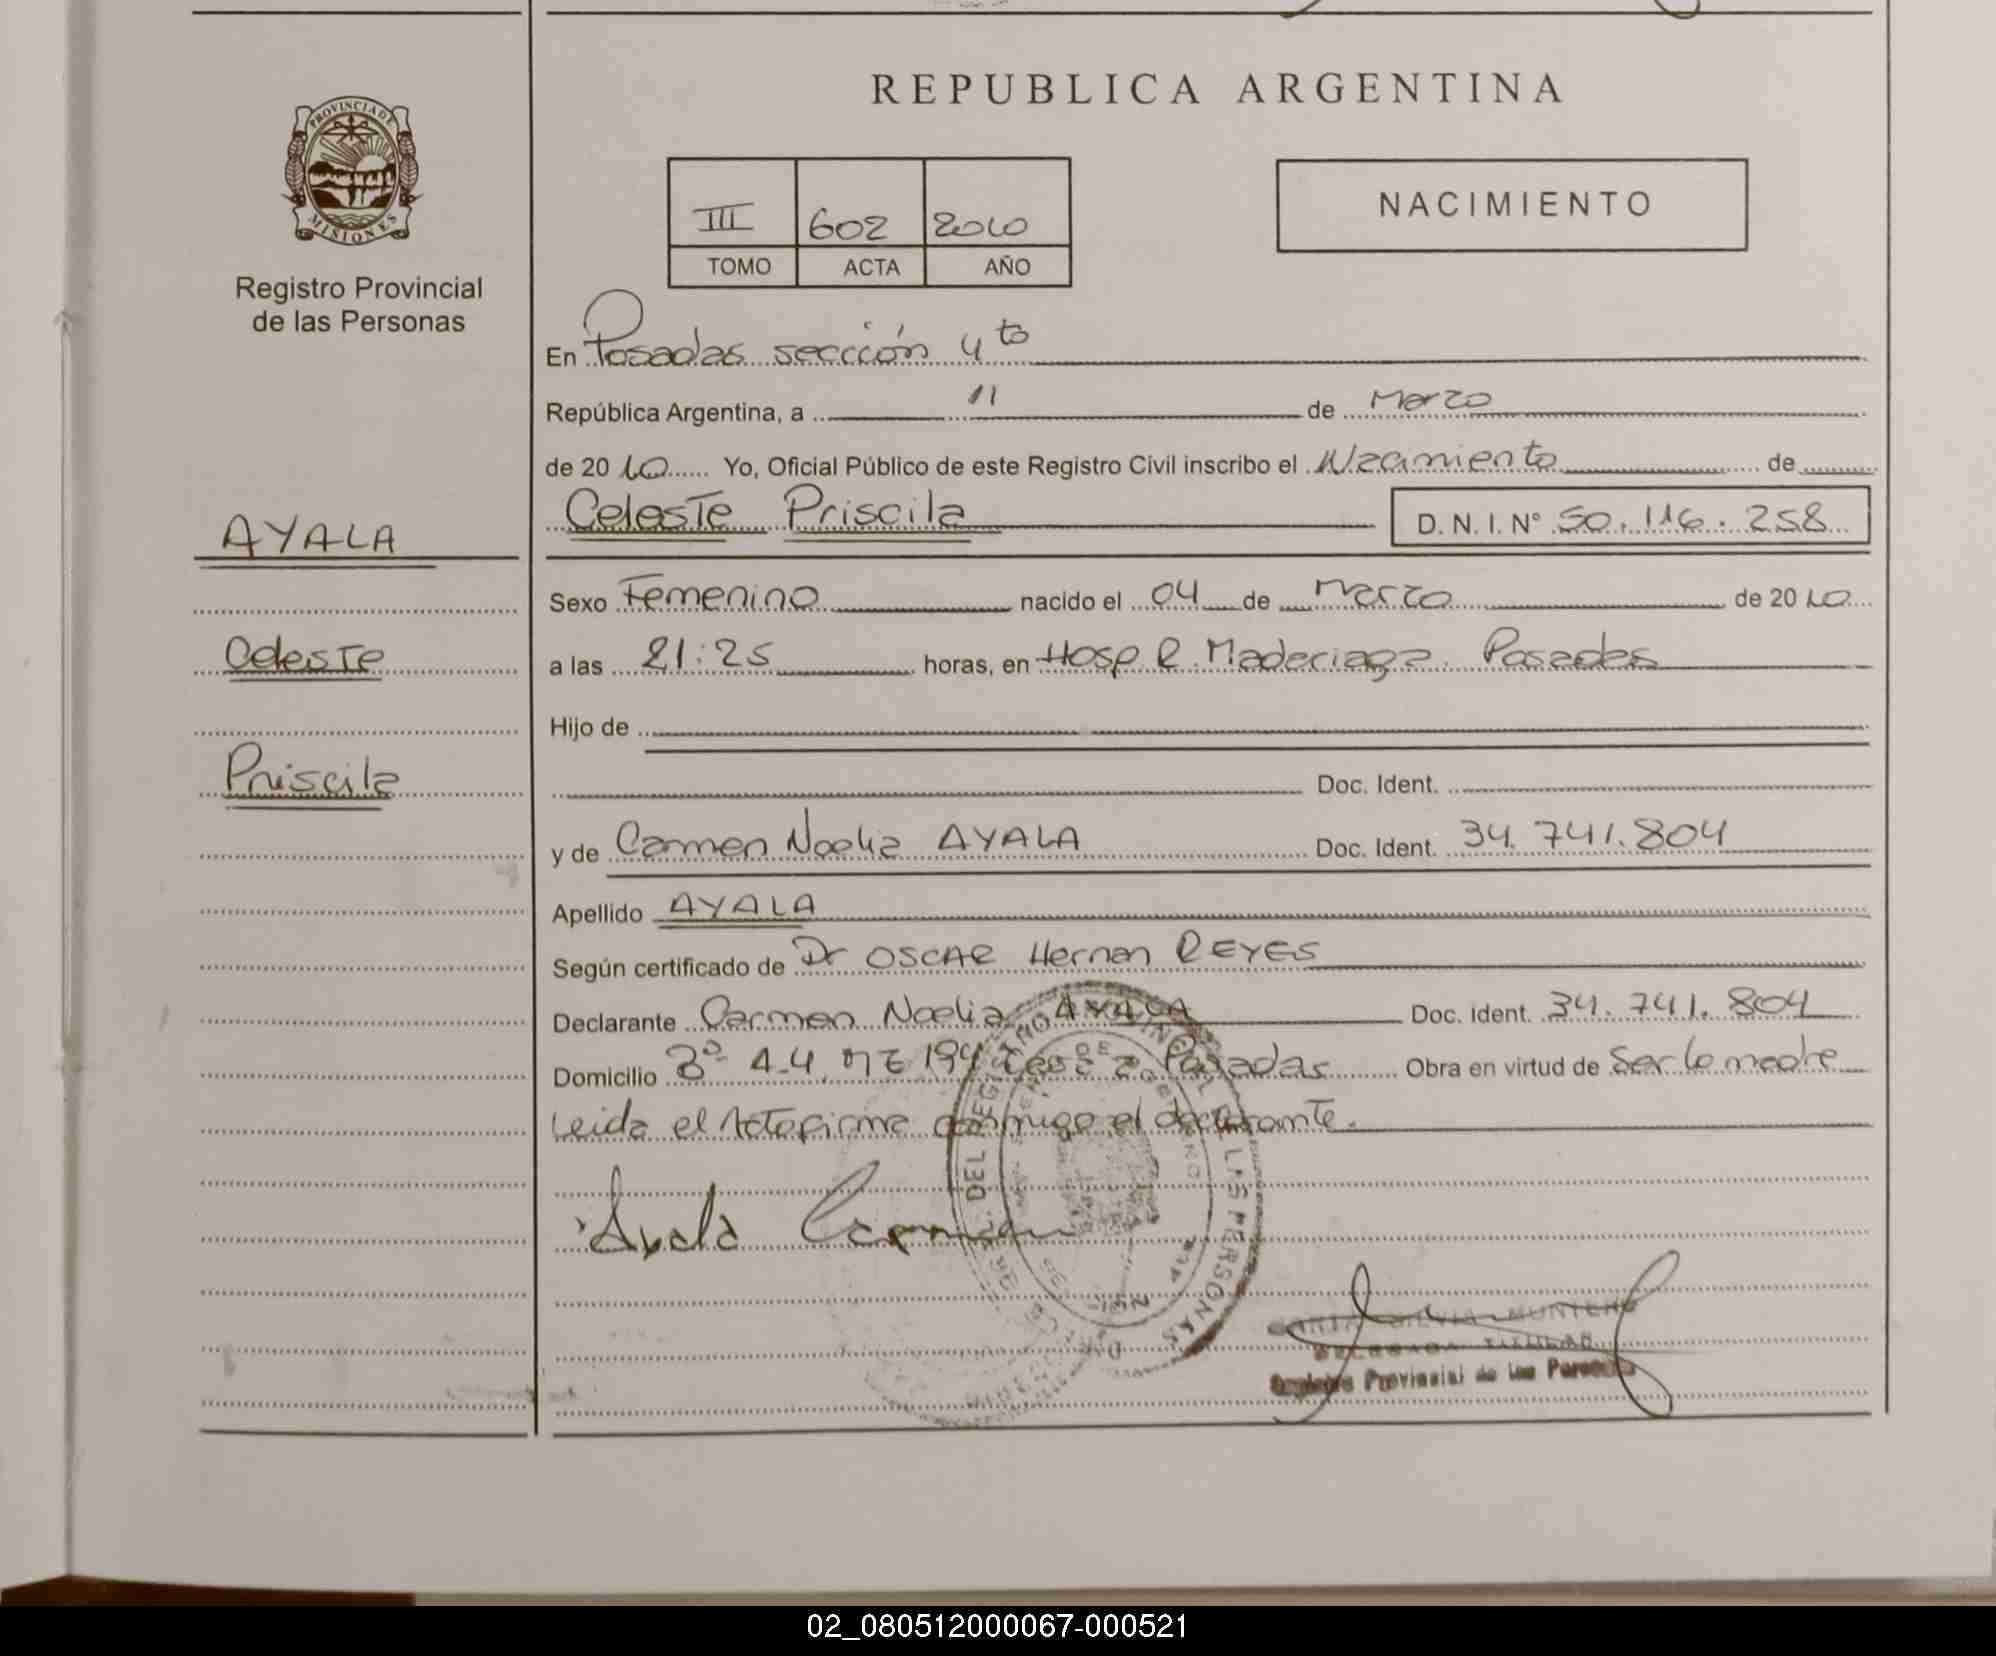 REPUBLICA ARGENTINA
PROVINCIA DE
MISIONES
Registro Provincial
de las Personas
III 602 2010
TOMO ACTA AÑO
NACIMIENTO
En Posadas sección 4to
República Argentina, a 11 de Marzo
de 2010 Yo, Oficial Público de este Registro Civil inscribo el Nacimiento de
Celeste Priscila D. N. I. Nº 50.116.258
AYALA
Sexo Femenino nacido el 04 de Marzo de 2010
Celeste
a las 21:25 horas, en Hosp R. Madariaga. Posadas
Hijo de
Priscila
Doc. Ident.
y de Carmen Noelia AYALA Doc. Ident. 34.741.804
Apellido AYALA
Según certificado de Dr OSCAR Hernan REYES
Declarante Carmen Noelia AYALA Doc. ident. 34.741.804
Domicilio Bº A-4 Posadas Obra en virtud de Ser la madre
Leida el Acta firma conmigo el declarante.
Ayala Carmen
DEL LAS PERSONAS
SILVIA MUNIERS
DELEGADA TITULAR
Registro Provincial de las Personas
02_080512000067-000521